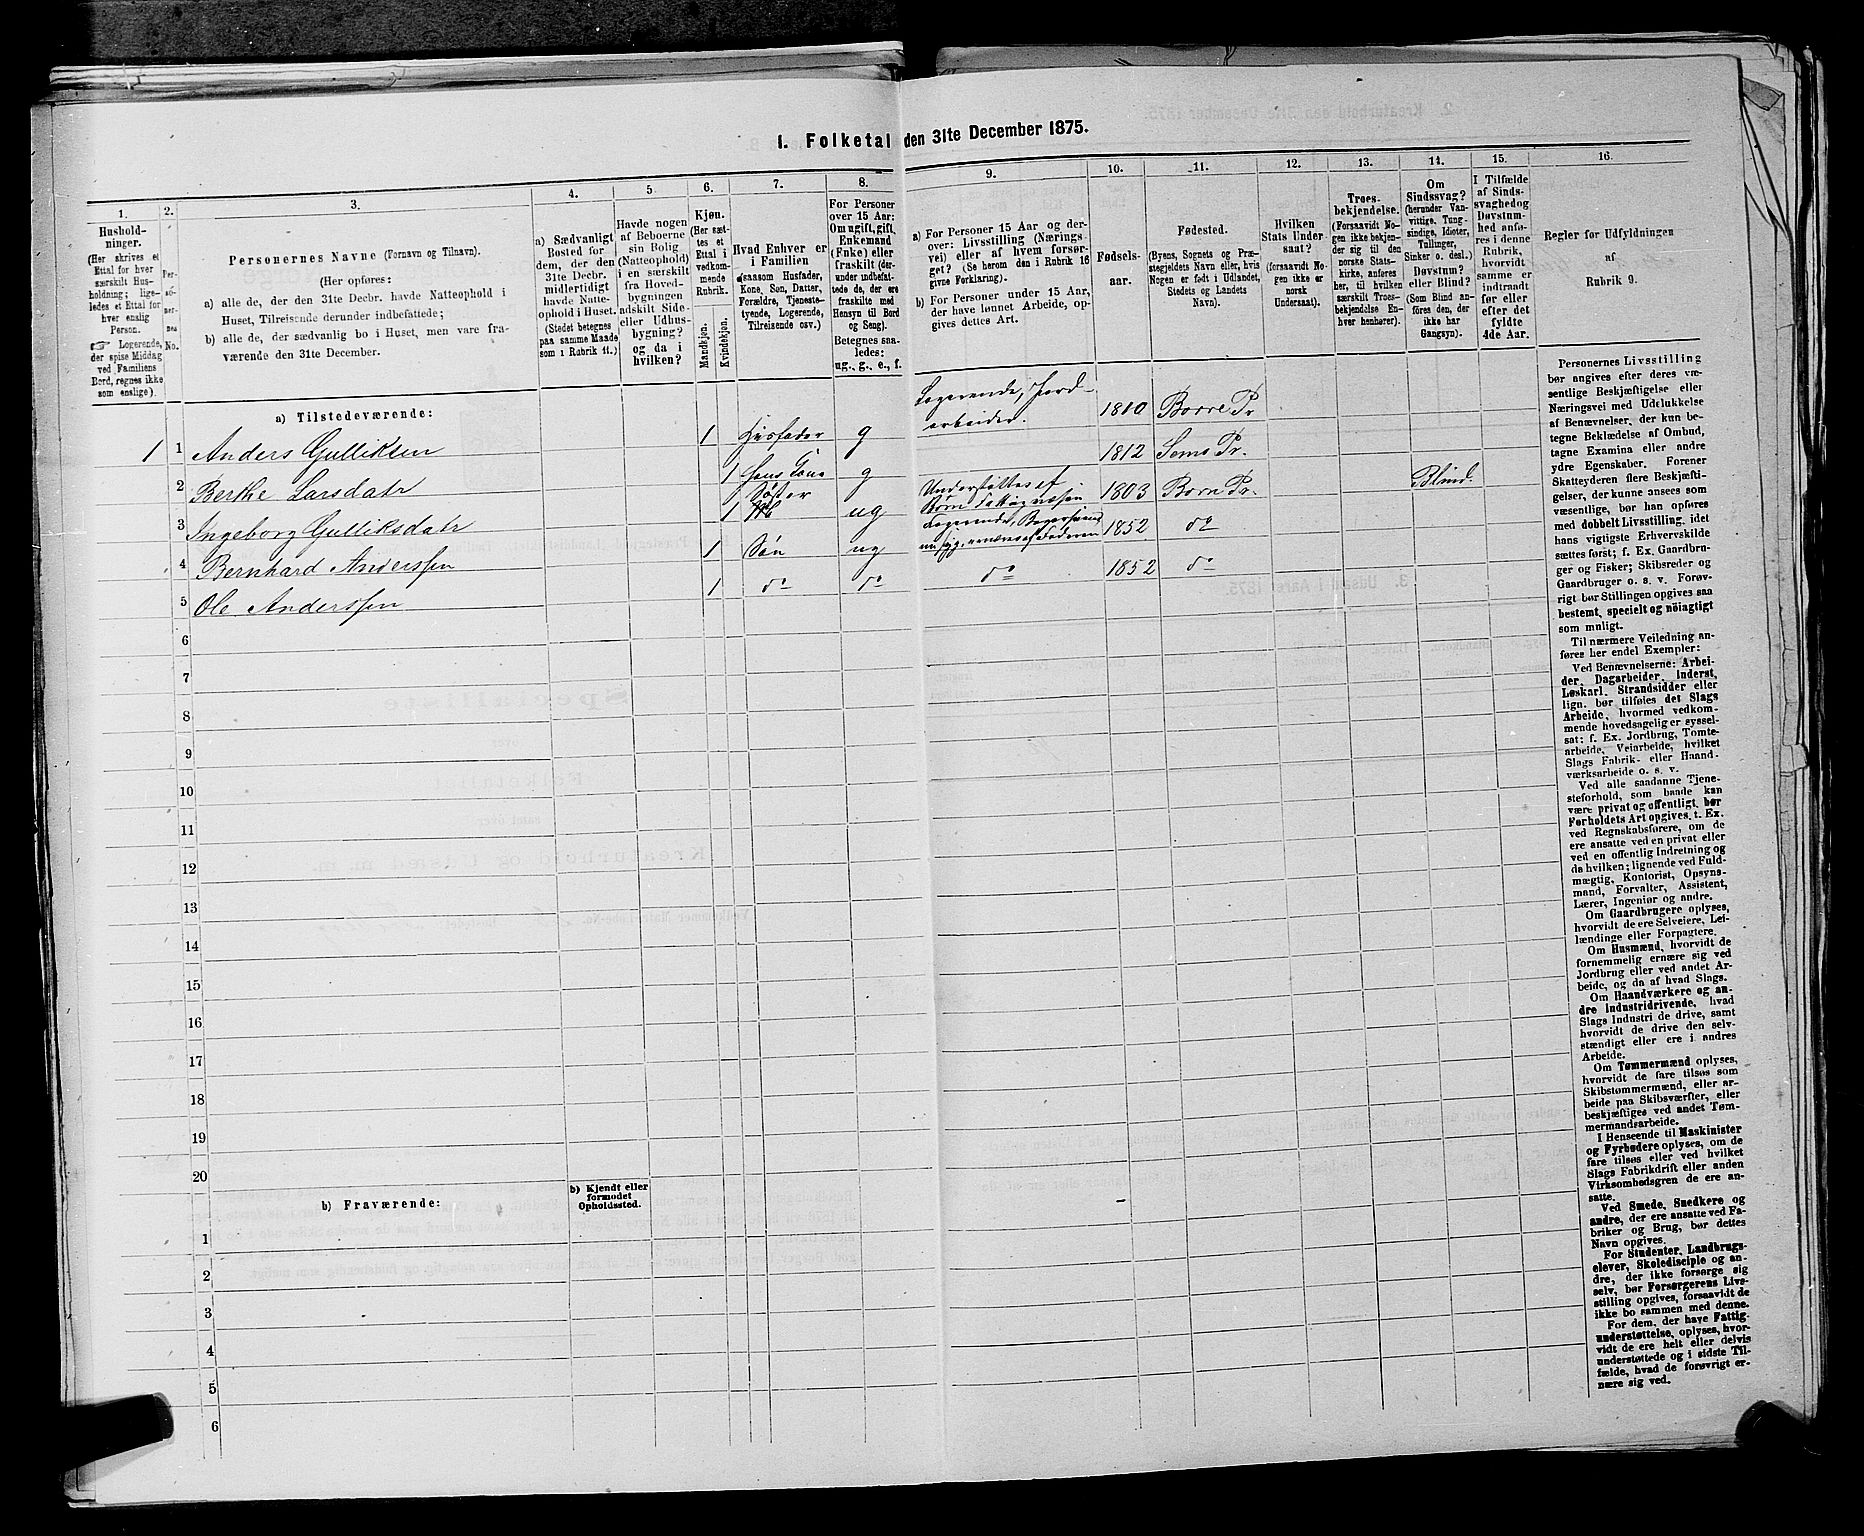 1. Folketal den 31te December 1875.
1.
2.
3.
4.
5.
6.
7.
8.
9.
10.
11.
12.
13.
14.
15.
16.
Hushold-
ninger.
(Her skrives et
Ettal for hver
særskilt Hus-
holdning; lige-
ledes et Ettal for
hver enslig
Person.
☞ Logerende,
der spise Middag
ved Familiens
Bord, regnes ikke
som enslige).
Per-
so-
ner-
nes
No.
Personernes Navne (Fornavn og Tilnavn).
(Her opføres:
a) alle de, der den 31te Decbr. havde Natteophold i
Huset, Tilreisende derunder indbefattede;
b) alle de, der sædvanlig bo i Huset, men vare fra-
værende den 31te December.
a) Sædvanligt
Bosted for
dem, der den
31te Decbr.
midlertidigt
havde Natte-
ophold i Huset.
(Stedet betegnes
paa samme Maade
som i Rubrik 11.)
Havde nogen
af Beboerne
sin Bolig
(Natteophold)
i en særskilt
fra Hoved-
bygningen
adskilt Side-
eller Udhus-
bygning?
og da i
hvilken?
Kjøn.
(Her sæt-
tes et
Ettal i
vedkom-
mende
Rubrik.
Mandkjøn.
Kvindekjøn.
Hvad Enhver er
i Familien
(saasom Husfader,
Kone, Søn, Datter,
Forældre, Tjeneste-
tyende, Logerende,
Tilreisende osv.)
For Personer
over 15 Aar:
Om ugift, gift,
Enkemand
(Enke) eller
fraskilt (der-
under indbefat-
tede de, der ere
fraskilte med
Hensyn til Bord
og Seng).
Betegnes saa-
ledes:
ug., g., e., f.
a) For Personer 15 Aar og der-
over: Livsstilling (Nærings-
vei) eller af hvem forsør-
get? (Se herom den i Rubrik 16
givne Forklaring).
b) For Personer under 15 Aar,
der have lønnet Arbeide, op-
gives dettes Art.
Fødsels-
aar.
Fødested.
(Byens, Sognets og Præ-
stegjeldets Navn eller, hvis
Nogen er født i Udlandet,
Stedets og Landets
Navn).
Hvilken
Stats Under-
saat?
(forsaavidt No-
gen ikke er
norsk
Undersaat).
Troes-
bekjendelse.
(Forsaavidt No-
gen ikke bekjen-
der sig til den
norske Stats-
kirke, anføres
her, til hvilken
særskilt Troes-
bekjendelse En-
hver henhører).
Om
Sindssvag?
(herunder Van-
vittige, Tung-
sindige, Idioter,
Tullinger,
Sinker o. desl.)
Døvstum?
eller Blind?
(Som Blind an-
føres den, der
ikke har
Gangsyn).
I Tilfælde
af Sinds-
svaghed og
Døvstum-
hed anfø-
res i denne
Rubrik,
hvorvidt
samme er
indtraadt
før eller
efter det
fyldte
4de Aar.
Regler for Udfyldningen
af
Rubrik 9.
a) Tilstedeværende:
1 1 Anders Gulliksen 1 Husfader g Logerende, Jord-
arbeider. 1810 Borre Pr
2 Berthe Larsdatr 1 hans Kone g 1812 Sems Pr.
3 Ingeborg Gulliksdatr 1 Søster ug Understøttes af
1803 Borre Pr. Blind.
4 Bernhard Anderssen 1 Søn ug 1852 do
5 Ole Anderssen 1 do do do 1852 do
6
7
8
9
10
11
12
13
14
15
16
17
18
19
20
b) Fraværende:
b) Kjendt eller
formodet
Opholdssted.
1
2
3
4
5
6
Personernes Livsstilling
bør angives efter deres væ-
sentlige Beskjæftigelse eller
Næringsvei med Udelukkelse
af Benævnelser, der kun be-
tegne Beklædelse af Ombud,
tagne Examina eller andre
ydre Egenskaber. Forener
Skatteyderen flere Beskjæfti-
gelser, der kunne ansees som
væsentlige, bør han opføres
med dobbelt Livsstilling, idet
hans vigtigste Erhvervskilde
sættes først; f. Ex. Gaardbru-
ger og Fisker; Skibsreder og
Gaardbruger o. s. v. Forøv-
rigt bør Stillingen opgives saa
bestemt, specielt og nøiagtigt
som muligt.
Til nærmere Veiledning an-
føres her endel Exempler:
Ved Benævnelserne: Arbei-
der, Dagarbeider, Inderst,
Løskarl, Strandsidder eller
lign. bør tilføies det Slags
Arbeide, hvormed vedkom-
mende hovedsagelig er syssel-
sat; f. Ex. Jordbrug, Tomte-
arbeide, Veiarbeide, hvilket
Slags Fabrik- eller Haand-
værksarbeide o. s. v.
Ved alle saadanne Tjene-
steforhold, som baade kan
være privat og offentligt, bør
Forholdets Art opgives, t. Ex.
ved Regnskabsførere, om de
ere ansatte ved en privat eller
ved en offentlig Indretning og
da hvilken; lignende ved Fuld-
mægtig, Kontorist, Opsyns-
mand, Forvalter, Assistent,
Lærer, Ingeniør og andre.
Om Gaardbrugere oplyses,
hvorvidt de ere Selveiere, Lei-
lændinge eller Forpagtere.
Om Husmænd, hvorvidt de
fornemmelig ernære sig ved
Jordbrug eller ved andet Ar-
beide, og da af hvad Slags.
Om Haandværkere og an-
dre Industridrivende, hvad
Slags Industri de drive, samt
hvorvidt de drive den selv-
stændigt eller ere i andres
Arbeide.
Om Tømmermænd oplyses,
hvorvidt de fare tilsøs som
Skibstømmermænd, eller ar-
beide paa Skibsværfter, eller
beskjæftiges ved andet Tøm-
mermandsarbeide.
I Henseende til Maskinister
og Fyrbødere oplyses, om de
fare tilsøs eller ved hvilket
Slags Fabrikdrift eller anden
Virksomhedsgren de ere an-
satte.
Ved Smede, Snedkere og
andre, der ere ansatte ved Fa-
briker og Brug, bør dettes
Navn opgives.
For Studenter, Landbrugs-
elever, Skoledisciple og an-
dre, der ikke forsørge sig
selv, bør Forsørgerens Livs-
stilling opgives, forsaavidt de
ikke bo sammen med denne.
For dem, der have Fattig-
understøttelse, oplyses, hvor-
vidt de ere helt eller delvis
understøttede og i sidste Til-
fælde, hvad de forøvrigt er-
nære sig ved.